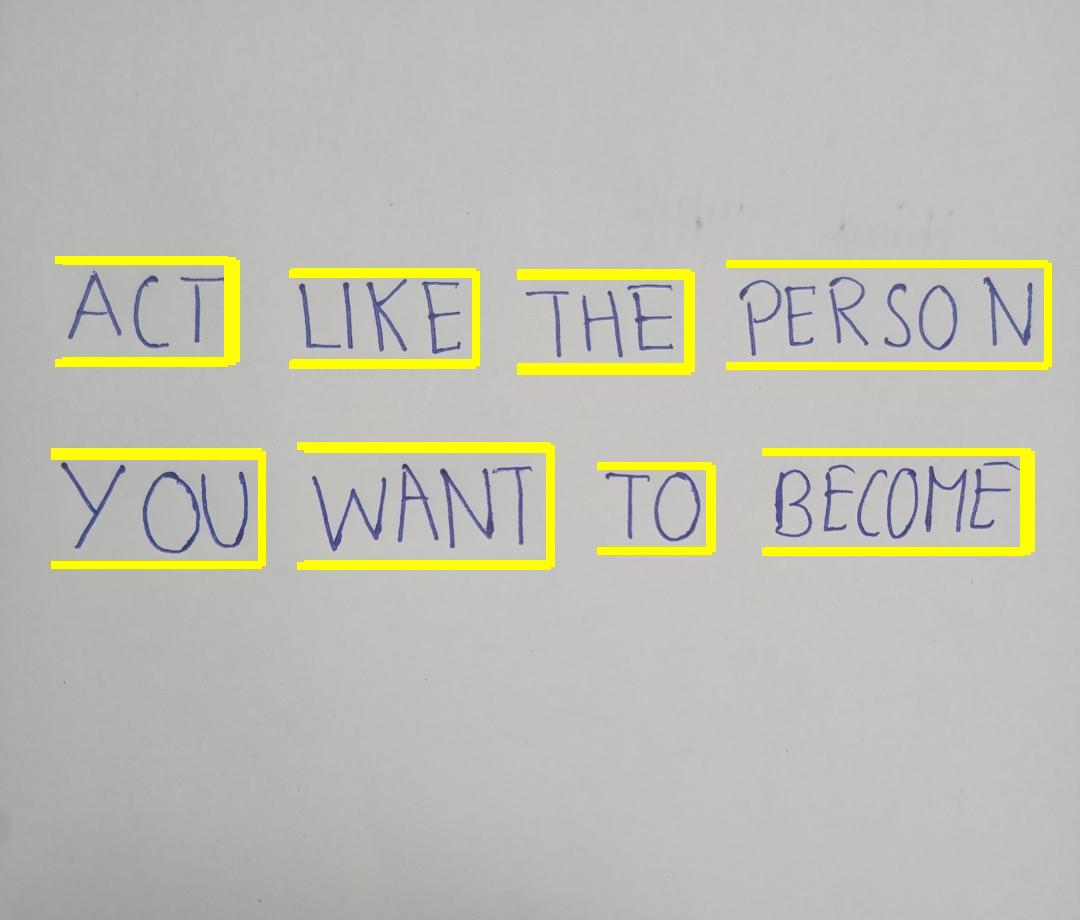 ACT LIKE THE PERSON
YOU WANT TO BECOME